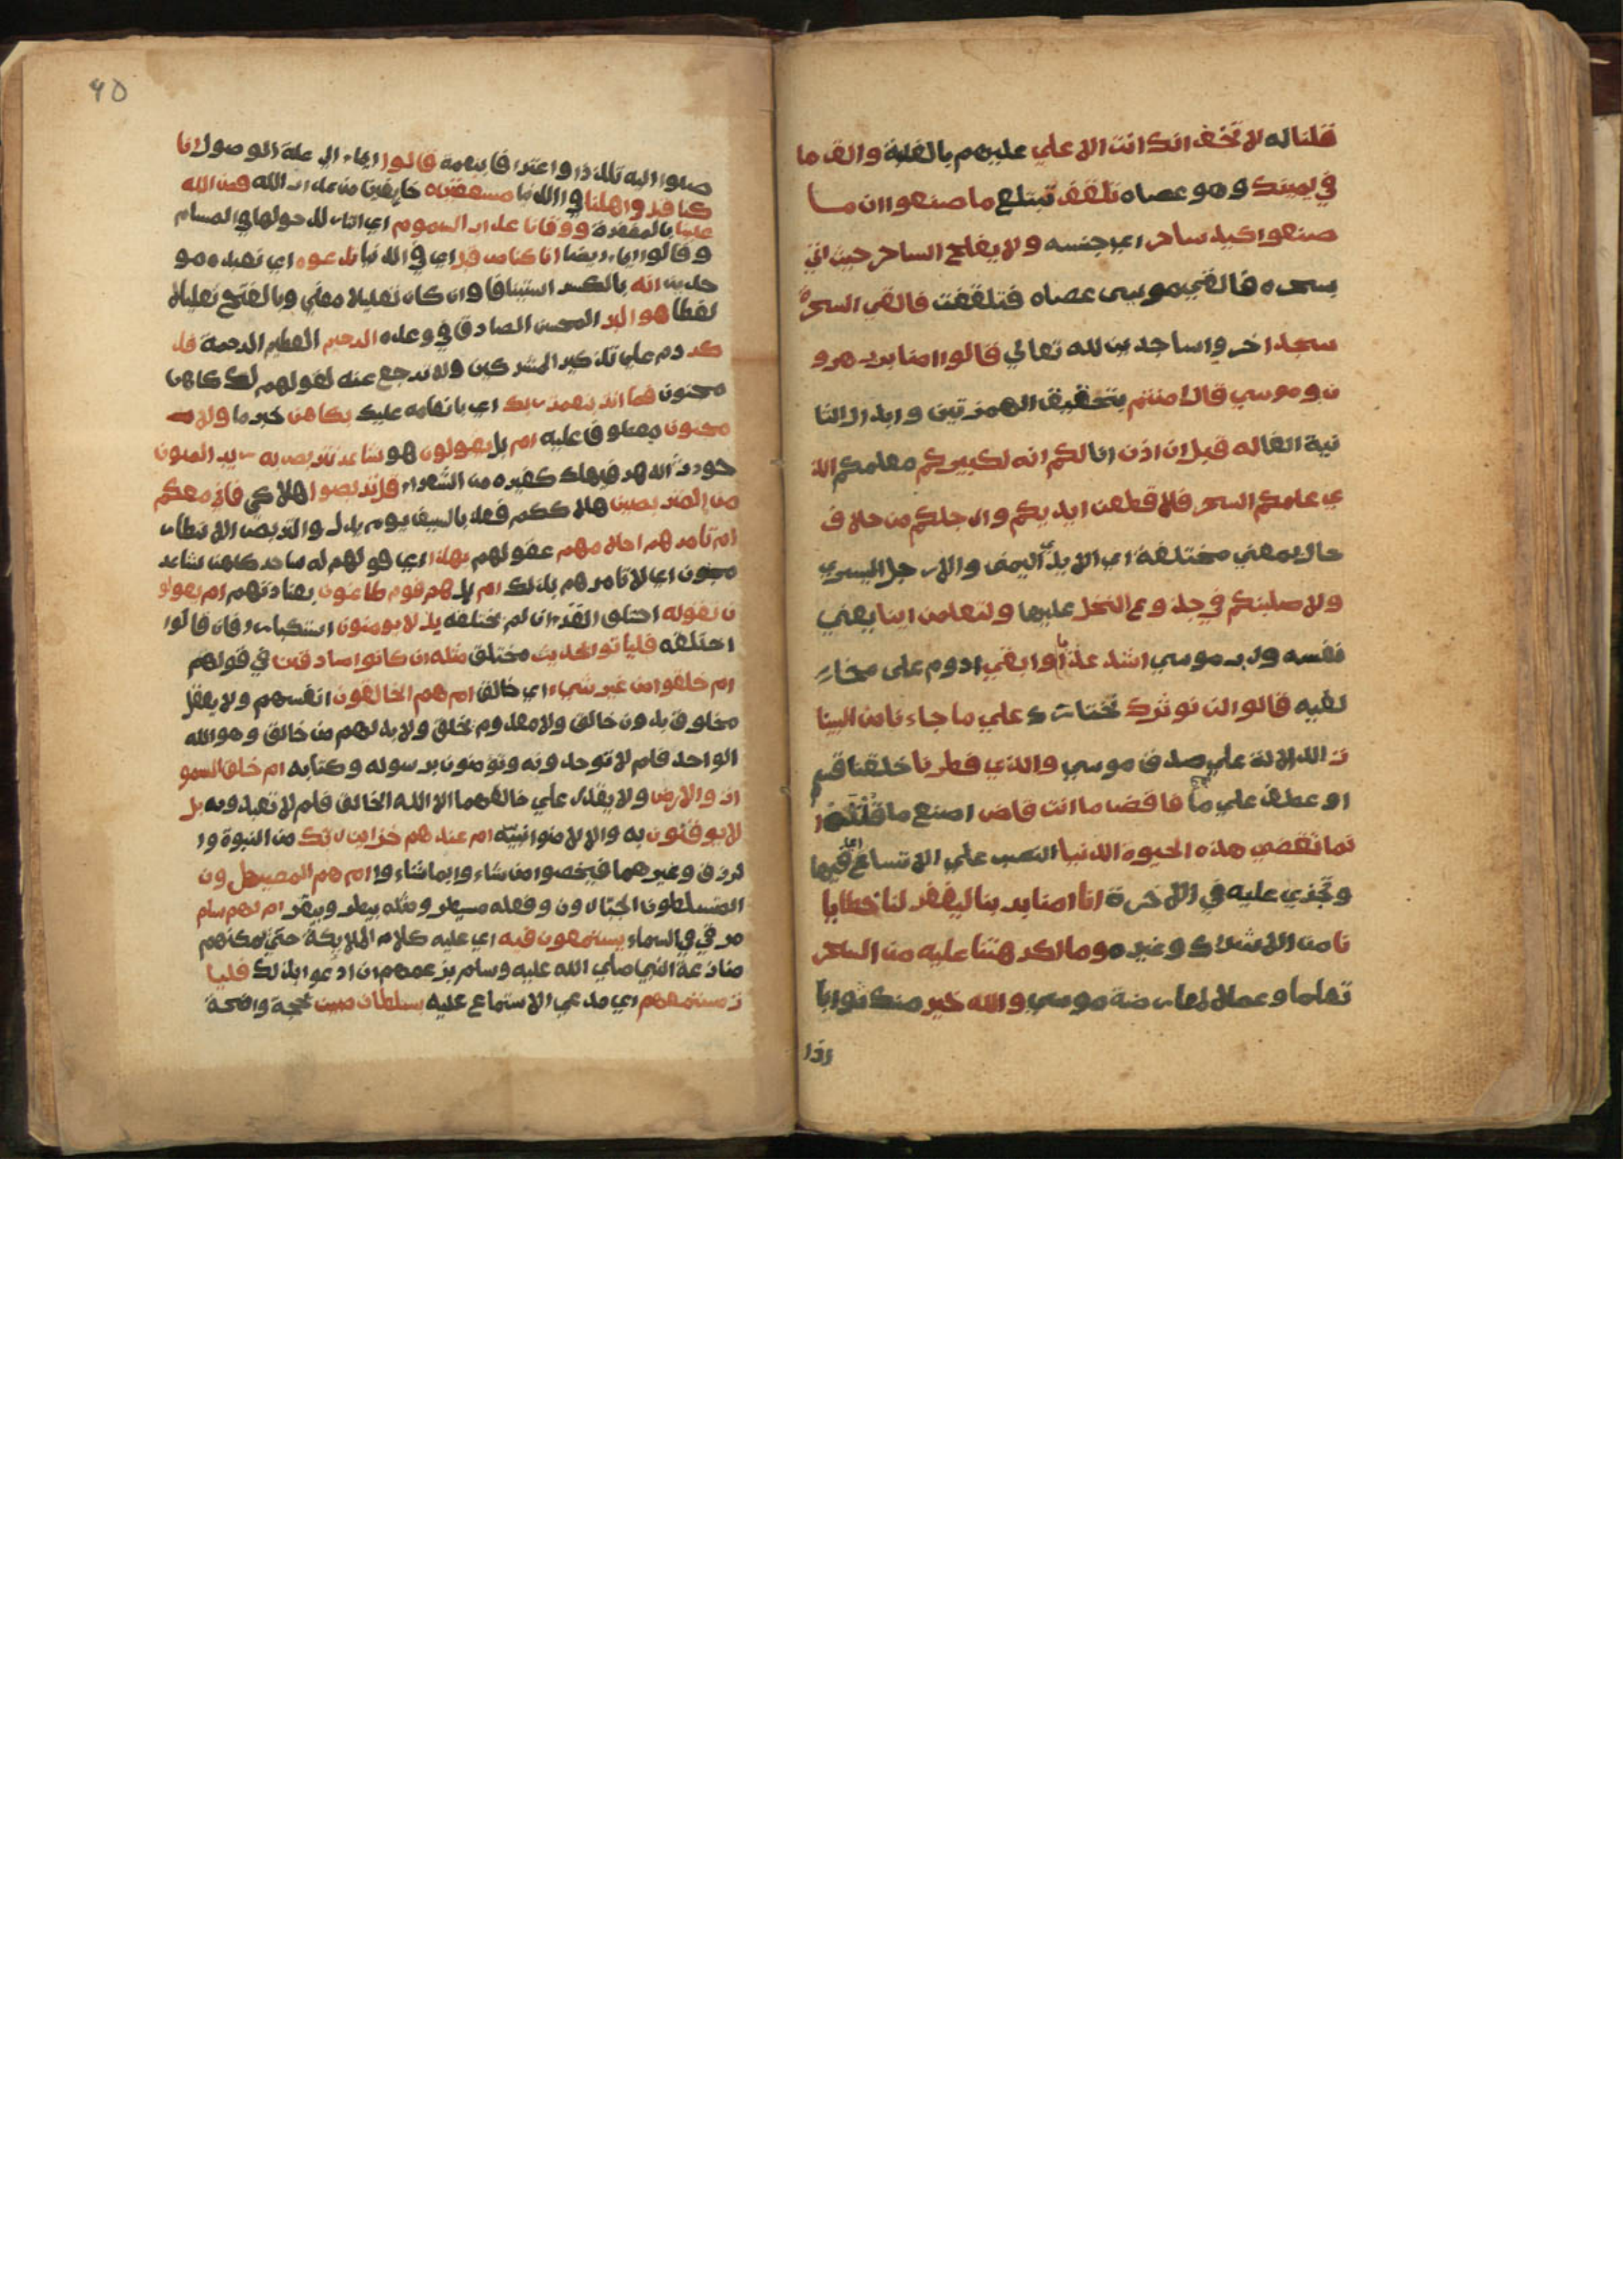 قلنا له لا تخف انك انت الاعلي عليهم بالغلبة والق ما
في يمينك وهو عصاه تلقف تبتلع ما صنعوا ان ما
صنعوا كيد ساحر اي جنسه ولا يفلح الساحر حيث اتي
بسحره فالقي موسي عصاه فتلقفت فالقي السحرة
سجدا خروا ساجدين لله تعالي قالوا امنا برب هرو
ن وموسي قال امنتم بتحقيق الهمزتين وابدال الثا
نية الفا له قبل ان اذن انا لكم انه لكبيركم معلمكم الذ
ي علمكم السحر فلا قطعن ايديكم وارجلكم من خلاف
حال بمعني مختلفة اي الايدي اليمني والارجل اليسري
ولاصلبنكم في جذوع النخل عليها ولتعلمن اينا يعني
نفسه ورب موسي اشد عذابا وابقي ادوم على مخا
لفيه قالوا لن نوثرك نختارك علي ما جاءنا من البينا
ت الدالة علي صدق موسي والذي فطرنا خلقنا قسم
او عطف علي ما فاقض ما انت قاض اصنع ما قلته ا
نما تقضي هذه الحيوة الدنيا النصب علي الاتساع اي فيها
وتجزي عليه في الاخرة انا امنا بربنا ليغفر لنا خطايا
نا من الاشراك وغيره وما اكرهتنا عليه من السحر
تعلما وعملا لمعارضة موسي والله خير منك ثوابا
اذا
٩٥
صلوا اليه تلذذا واعترافا بنعمة قالوا ايماء الي علة الوصول انا
كنا قبل في اهلنا في الدنيا مشفقين خايفين من عذاب الله فمن الله
علينا بالمغفرة ووقانا عذاب السموم اي النار لدخولها في المسام
وقالوا ايماء ايضا انا كنا من قبل اي في الدنيا ندعوه اي نعبده مو
حدين انه بالكسر استينافا وان كان تعليلا معني وبالفتح تعليلا
لفظا هو البر المحسن الصادق في وعده الرحيم العظيم الرحمة فذ
كر دم علي تذكير المشركين ولا ترجع عنه لقولهم لك كاهن
مجنون فما انت بنعمت ربك اي بانعامه عليك بكاهن خبر ما ولا
مجنون معطوف عليه ام بل يقولون هو شاعر نتربص به ريب المنون
حوادث الدهر فيهلك كغيره من الشعراء قل تربصوا هلاكي فاني معكم
من المتربصين هلاككم فعذبوا بالسيف يوم بدر والتربص الانتظار
ام تامرهم احلامهم عقولهم بهذا اي قولهم له ساحر كاهن شاعر
مجنون اي لا تامرهم بذلك ام بل هم قوم طاغون بعنادهم ام يقولو
ن تقوله اختلق القران لم يختلقه بل لا يومنون استكبارا فان قالوا
اختلقه فلياتوا بحديث مختلق مثله ان كانوا صادقين في قولهم
ام خلقوا من غير شيء اي خالق ام هم الخالقون انفسهم ولا يعقل
مخلوق بدون خالق ولا معدوم يخلق ولا بد لهم من خالق وهو الله
الواحد فلم لا توحدونه وتؤمنون برسوله وكتابه ام خلقوا السمو
ات والارض ولا يقدر علي خالقهما الا الله الخالق فلم لا تعبدونه بل
لا يوقنون به والا لامنوا بنبيه ام عندهم خزاين ربك من النبوة وا
لرزق وغيرهما فيخصوا من شاءوا بما شاءوا ام هم المصيطرون
المتسلطون الجبارون وفعله سيطر ومثله بيطر وبيقر ام لهم سلم
مرقي في السماء يستمعون فيه اي عليه كلام الملايكة حتي يمكنهم
منازعة النبي صلي الله عليه وسلم بزعمهم ان ادعوا بذلك فليا
ت مستمعهم اي مدعي الاستماع عليه بسلطان مبين بحجة واضحة